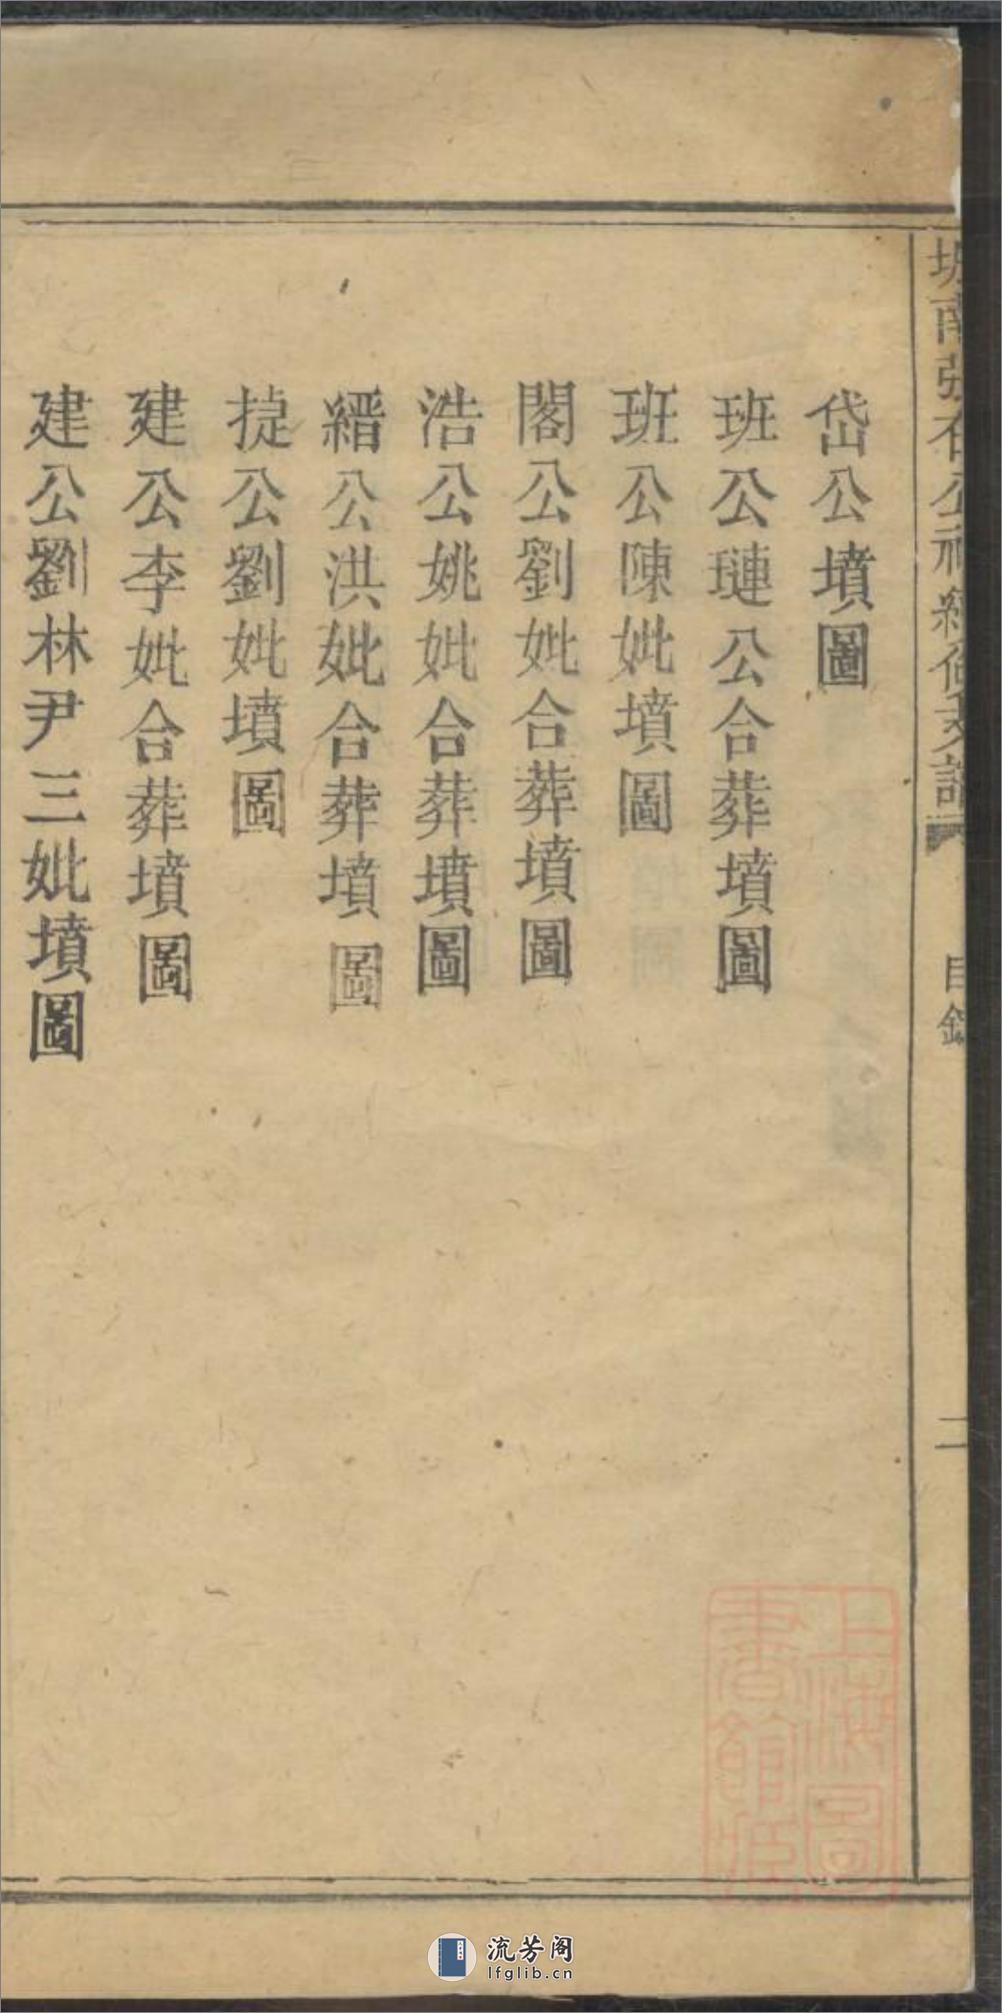 岱公墳圖
班公璉公合葬墳圖
班公陳妣墳圖
閣公劉妣合葬墳圖
浩公姚妣合葬墳圖
縉公洪妣合葬墳圖
捷公劉妣墳圖
建公李妣合葬墳圖
建公劉林尹三妣墳圖
目錄
二
上海圖書館藏
流芳阁
lfglib.cn